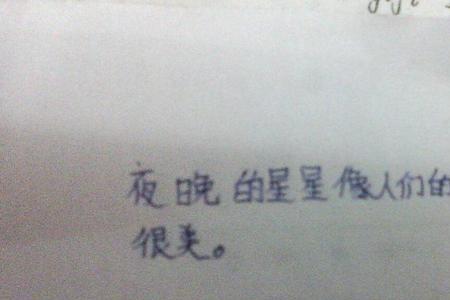 夜晚的星星像人们的
很美。